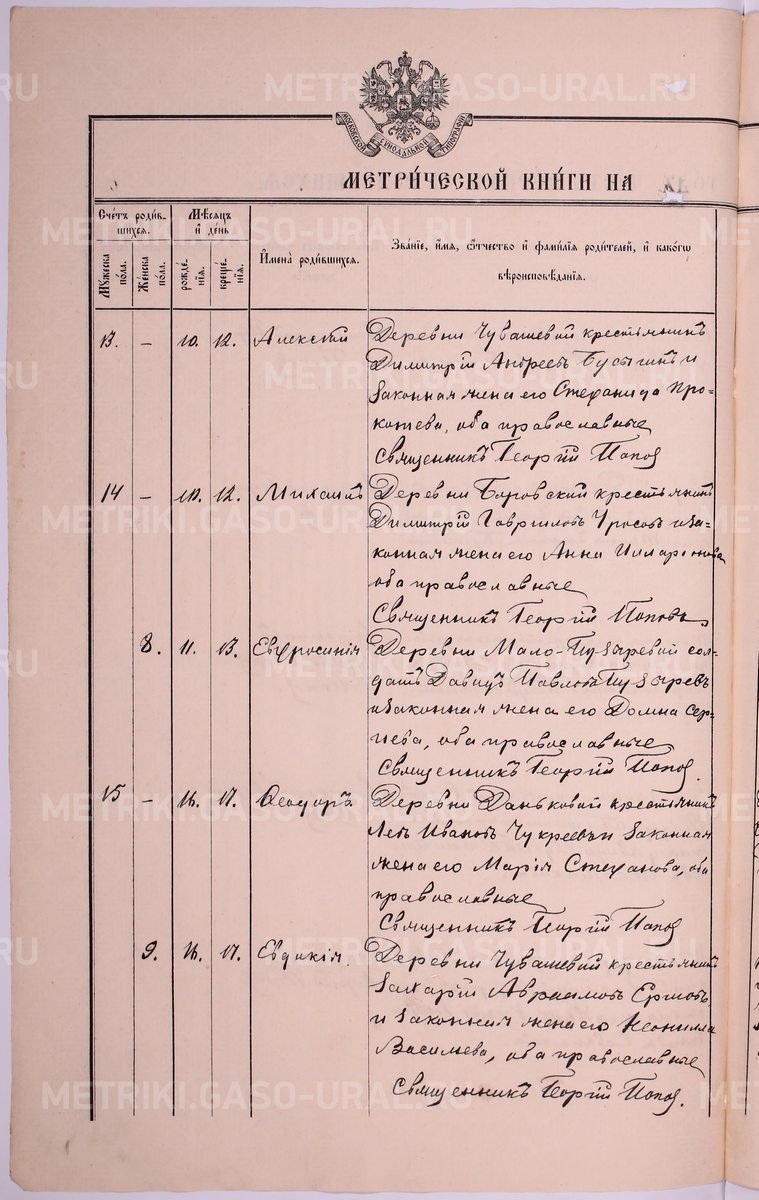 METRIKI.GASO-URAL.RU
МОСКОВСКОЙ СѴНОДАЛЬНОЙ ТИПОГРАФІИ
МЕТРИ́ЧЕСКОЙ КНИ́ГИ НА
Сче́тъ роди́вшихся.
Мѣ́сяцъ и де́нь
Имена̀ роди́вшихся.
Зва́ніе, и́мя, ѻ́тчество и фами́лія роди́телей, и како́гѡ вѣроисповѣ́данія.
Мꙋ́жеска по́ла.
Же́нска по́ла.
рожде́нія.
креще́нія.
13. – 10. 12. Алексѣй Деревни Чувашевой крестьянинъ
Димитрій Андреевъ Бусыгинъ и
законная жена его Стефанида Про-
копьева, оба православные
Священникъ Георгій Попов
14 – 10. 12. Михаилъ Деревни Боровский крестьянинъ
Димитрій Гавриловъ Уросовъ и за-
конная жена его Анна Илларіонова
оба православные
Священникъ Георгій Поповъ.
8. 11. 13. Евфросинія Деревни Мало-Пузыревой сол-
датъ Давидъ Павловъ Пузыревъ
и законная жена его Домна Сер-
гіева, оба православные
Священникъ Георгій Попов.
15 – 16. 17. Ѳеодоръ Деревни Даньковой крестьянинъ
Левъ Ивановъ Чукреевъ и законная
жена его Марія Стефанова, оба
православные
Священникъ Георгій Попов
9. 16. 17. Евдокія. Деревни Чувашевой крестьянинъ
Захарій Авраамовъ Ершовъ
и законная жена его Неонилла
Васильева, оба православные
Священникъ Георгій Попов.